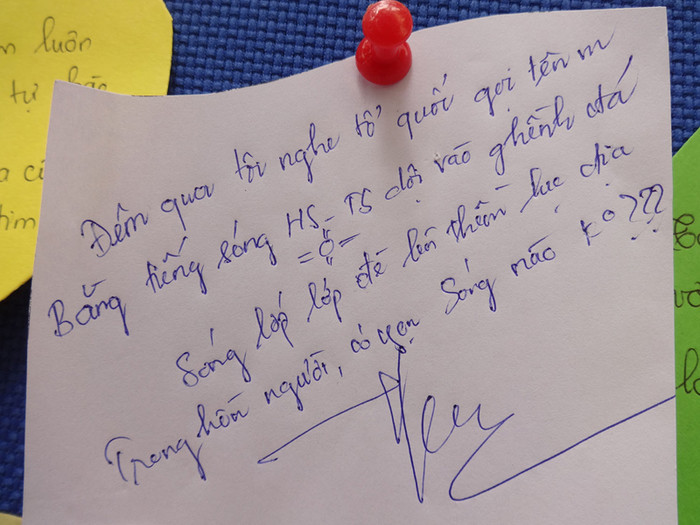 n luôn
tự
a c
tim
Đêm qua tôi nghe tổ quốc gọi tên m
Bằng tiếng sóng HS_TS dội vào ghềnh đá
Sóng lớp lớp đè lên thềm lục địa
Trong hồn người, có ngọn sóng nào k°???